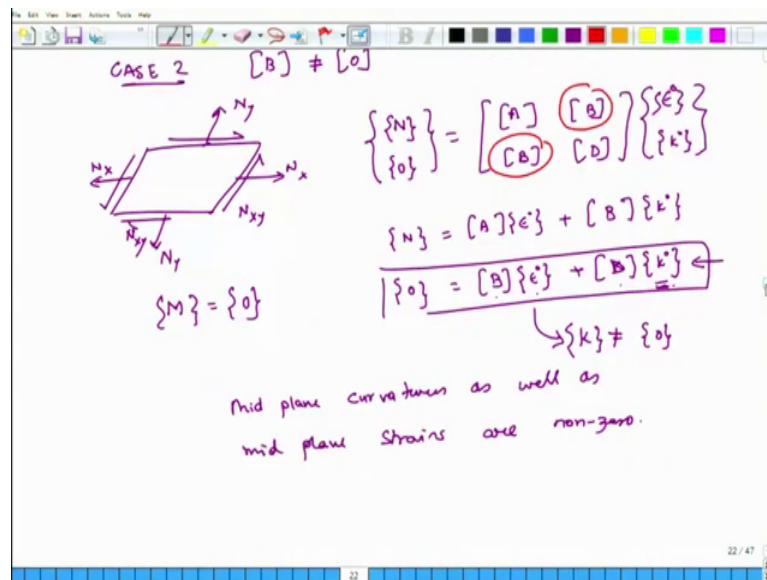 File Edit View Insert Actions Tools Help
CASE 2 [B] ≠ [0]
Ny
Nx
Nx
Nxy
Nxy
Ny
{M} = {0}
{{N} {0}} = [[A] [B] [B] [D]] {{ϵ°} {k°}}
{N} = [A]{ϵ°} + [B]{k°}
{0} = [B]{ϵ°} + [D]{k°} ←
{K} ≠ {0}
Mid plane curvatures as well as
mid plane strains are non-zero.
22 / 47
22